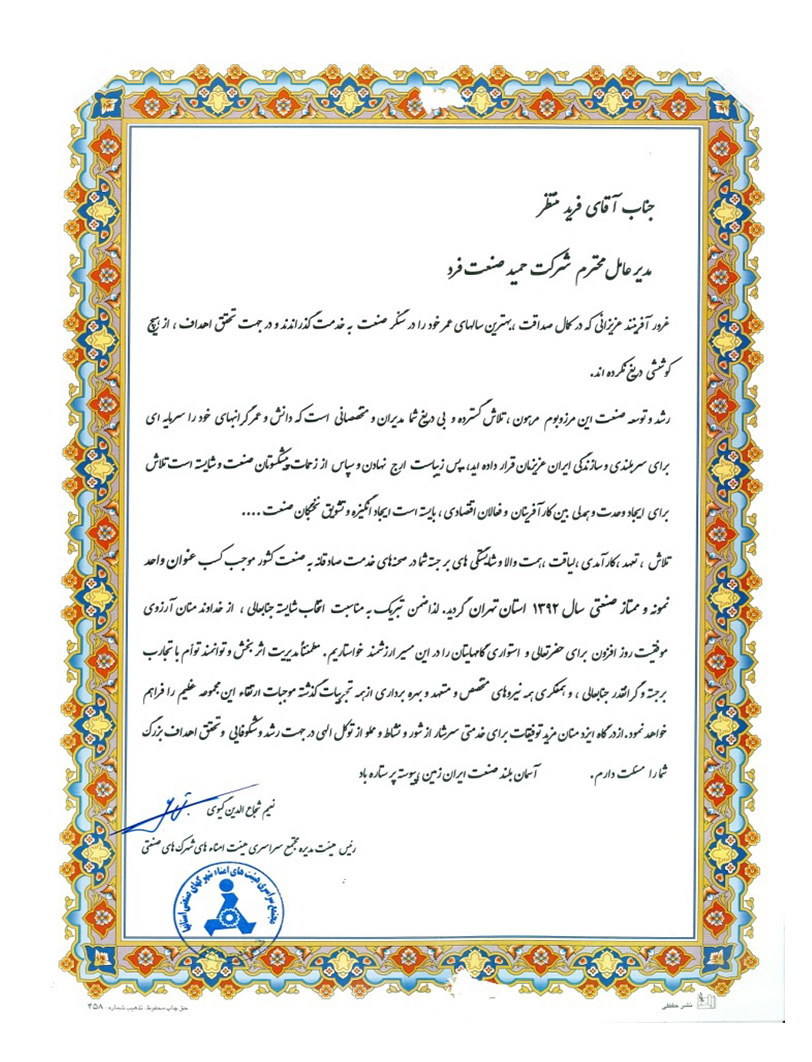 جناب آقای فرید منتظر
مدیر عامل محترم شرکت حمید صنعت فرد
غرور آفرینند عزیزانی که در کمال صداقت ، بهترین سالهای عمر خود را در سنگر صنعت به خدمت گذراندند و در جهت تحقق اهداف ، از هیچ
کوششی دریغ نکرده اند.
رشد و توسعه صنعت این مرزوبوم مرهون ، تلاش گسترده و بی دریغ شما مدیران و متخصصانی است که دانش و عمر گرانبهای خود را سرمایه ای
برای سربلندی و سازندگی ایران عزیزمان قرار داده اید، پس زیباست ارج نهادن و سپاس از زحمات پیشکسوتان صنعت و شایسته است تلاش
برای ایجاد وحدت و همدلی بین کارآفرینان و فعالان اقتصادی ، بایسته است ایجاد انگیزه و تشویق نخبگان صنعت ....
تلاش ، تعهد ،کارآمدی ،لیاقت ،همت والا و شایستگی های برجسته شما در صحنه های خدمت صادقانه به صنعت کشور موجب کسب عنوان واحد
نمونه و ممتاز صنعتی سال ۱۳۹۲ استان تهران گردید. لذا ضمن تبریک به مناسبت انتخاب شایسته جنابعالی ، از خداوند منان آرزوی
موفقیت روز افزون برای حضرتعالی و استواری گامهایتان را در این مسیر ارزشمند خواستاریم. مطمئناً مدیریت اثر بخش و توانمند توأم با تجارب
برجسته و گرانقدر جنابعالی ، و همفکری همه نیروهای متخصص و متعهد و بهره برداری از همه تجربیات گذشته موجبات ارتقاء این مجموعه عظیم را فراهم
خواهد نمود. از درگاه ایزد منان مزید توفیقات برای خدمتی سرشار از شور و نشاط و مملو از توکل الهی در جهت رشد و شکوفایی و تحقق اهداف بزرگ
شما را مسئلت دارم. آسمان بلند صنعت ایران زمین پیوسته پرستاره باد
نعیم شجاع الدین گیوی
رئیس هیئت مدیره مجتمع سراسری هیئت امناء های شهرک های صنعتی
مجتمع سراسری هیئت های امناء شهرکهای صنعتی استانها
نشر حافظی
حق چاپ محفوظ. تذهیب شماره: ۴۵۸